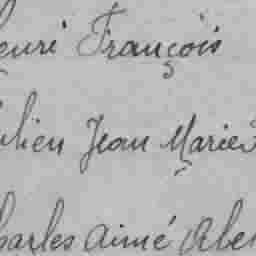 enri François
ulien Jean Marie
harles Aimé Albe